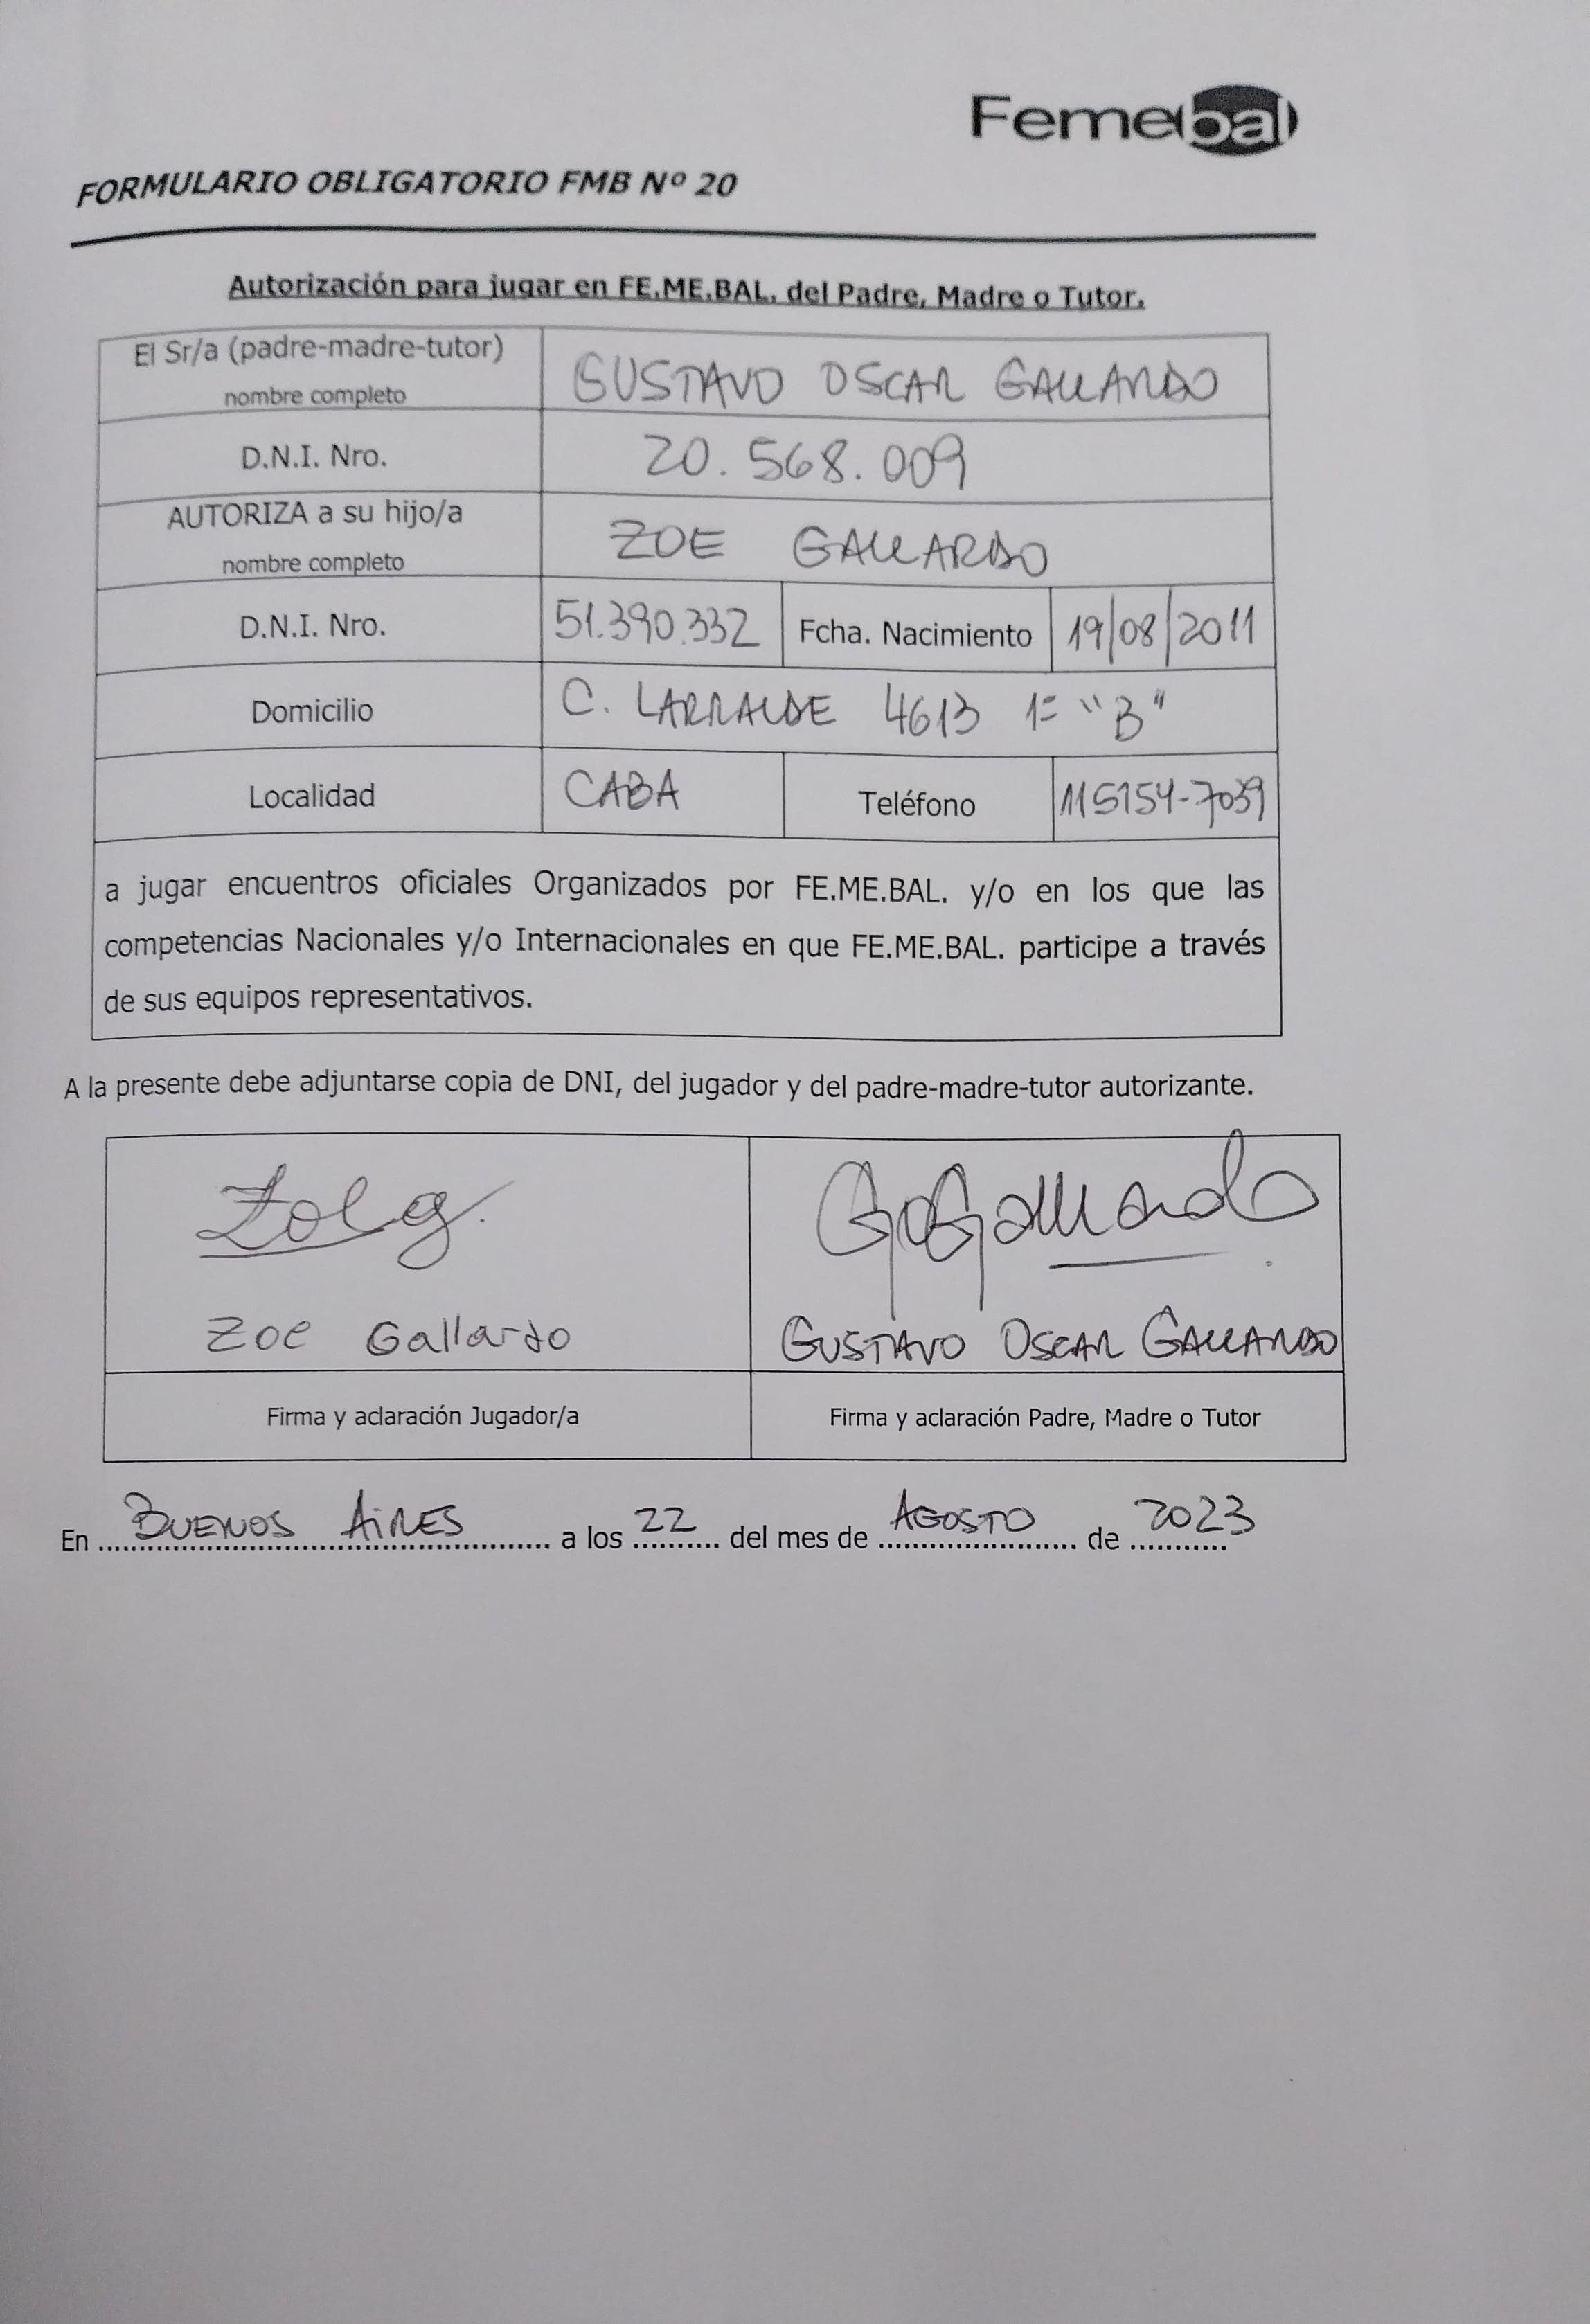 Femebal
FORMULARIO OBLIGATORIO FMB Nº 20
Autorización para jugar en FE.ME.BAL. del Padre, Madre o Tutor.
El Sr/a (padre-madre-tutor)
nombre completo
GUSTAVO OSCAR GALLARDO
D.N.I. Nro.
20.568.009
AUTORIZA a su hijo/a
nombre completo
ZOE GALLARDO
D.N.I. Nro.
51.390.332
Fcha. Nacimiento
19/08/2011
Domicilio
C. LARRALDE 4613 1º "B"
Localidad
CABA
Teléfono
115154-7039
a jugar encuentros oficiales Organizados por FE.ME.BAL. y/o en los que las
competencias Nacionales y/o Internacionales en que FE.ME.BAL. participe a través
de sus equipos representativos.
A la presente debe adjuntarse copia de DNI, del jugador y del padre-madre-tutor autorizante.
Zoe g.
Zoe Gallardo
Firma y aclaración Jugador/a
GOGallardo
GUSTAVO OSCAR GALLARDO
Firma y aclaración Padre, Madre o Tutor
En BUENOS AIRES a los 22 del mes de AGOSTO de 2023